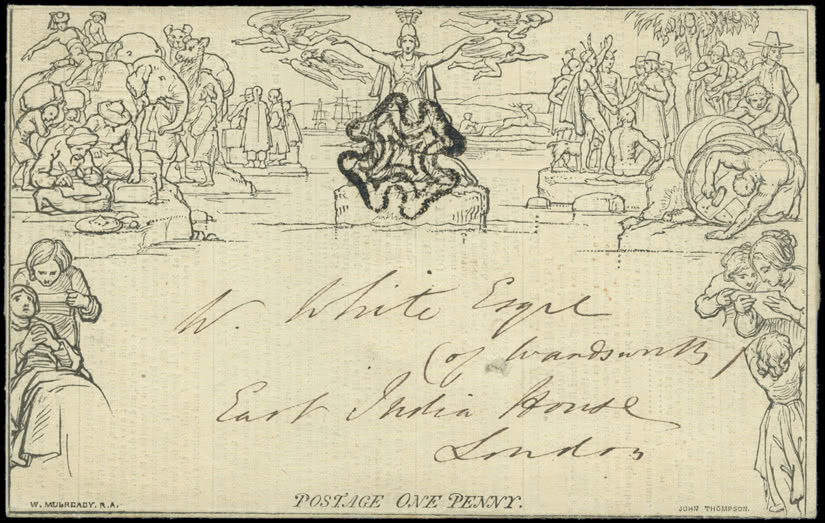 W. White Esqre
(of Wandsworth)
East India House
London
POSTAGE ONE PENNY.
W. MULREADY, R.A.
JOHN THOMPSON.